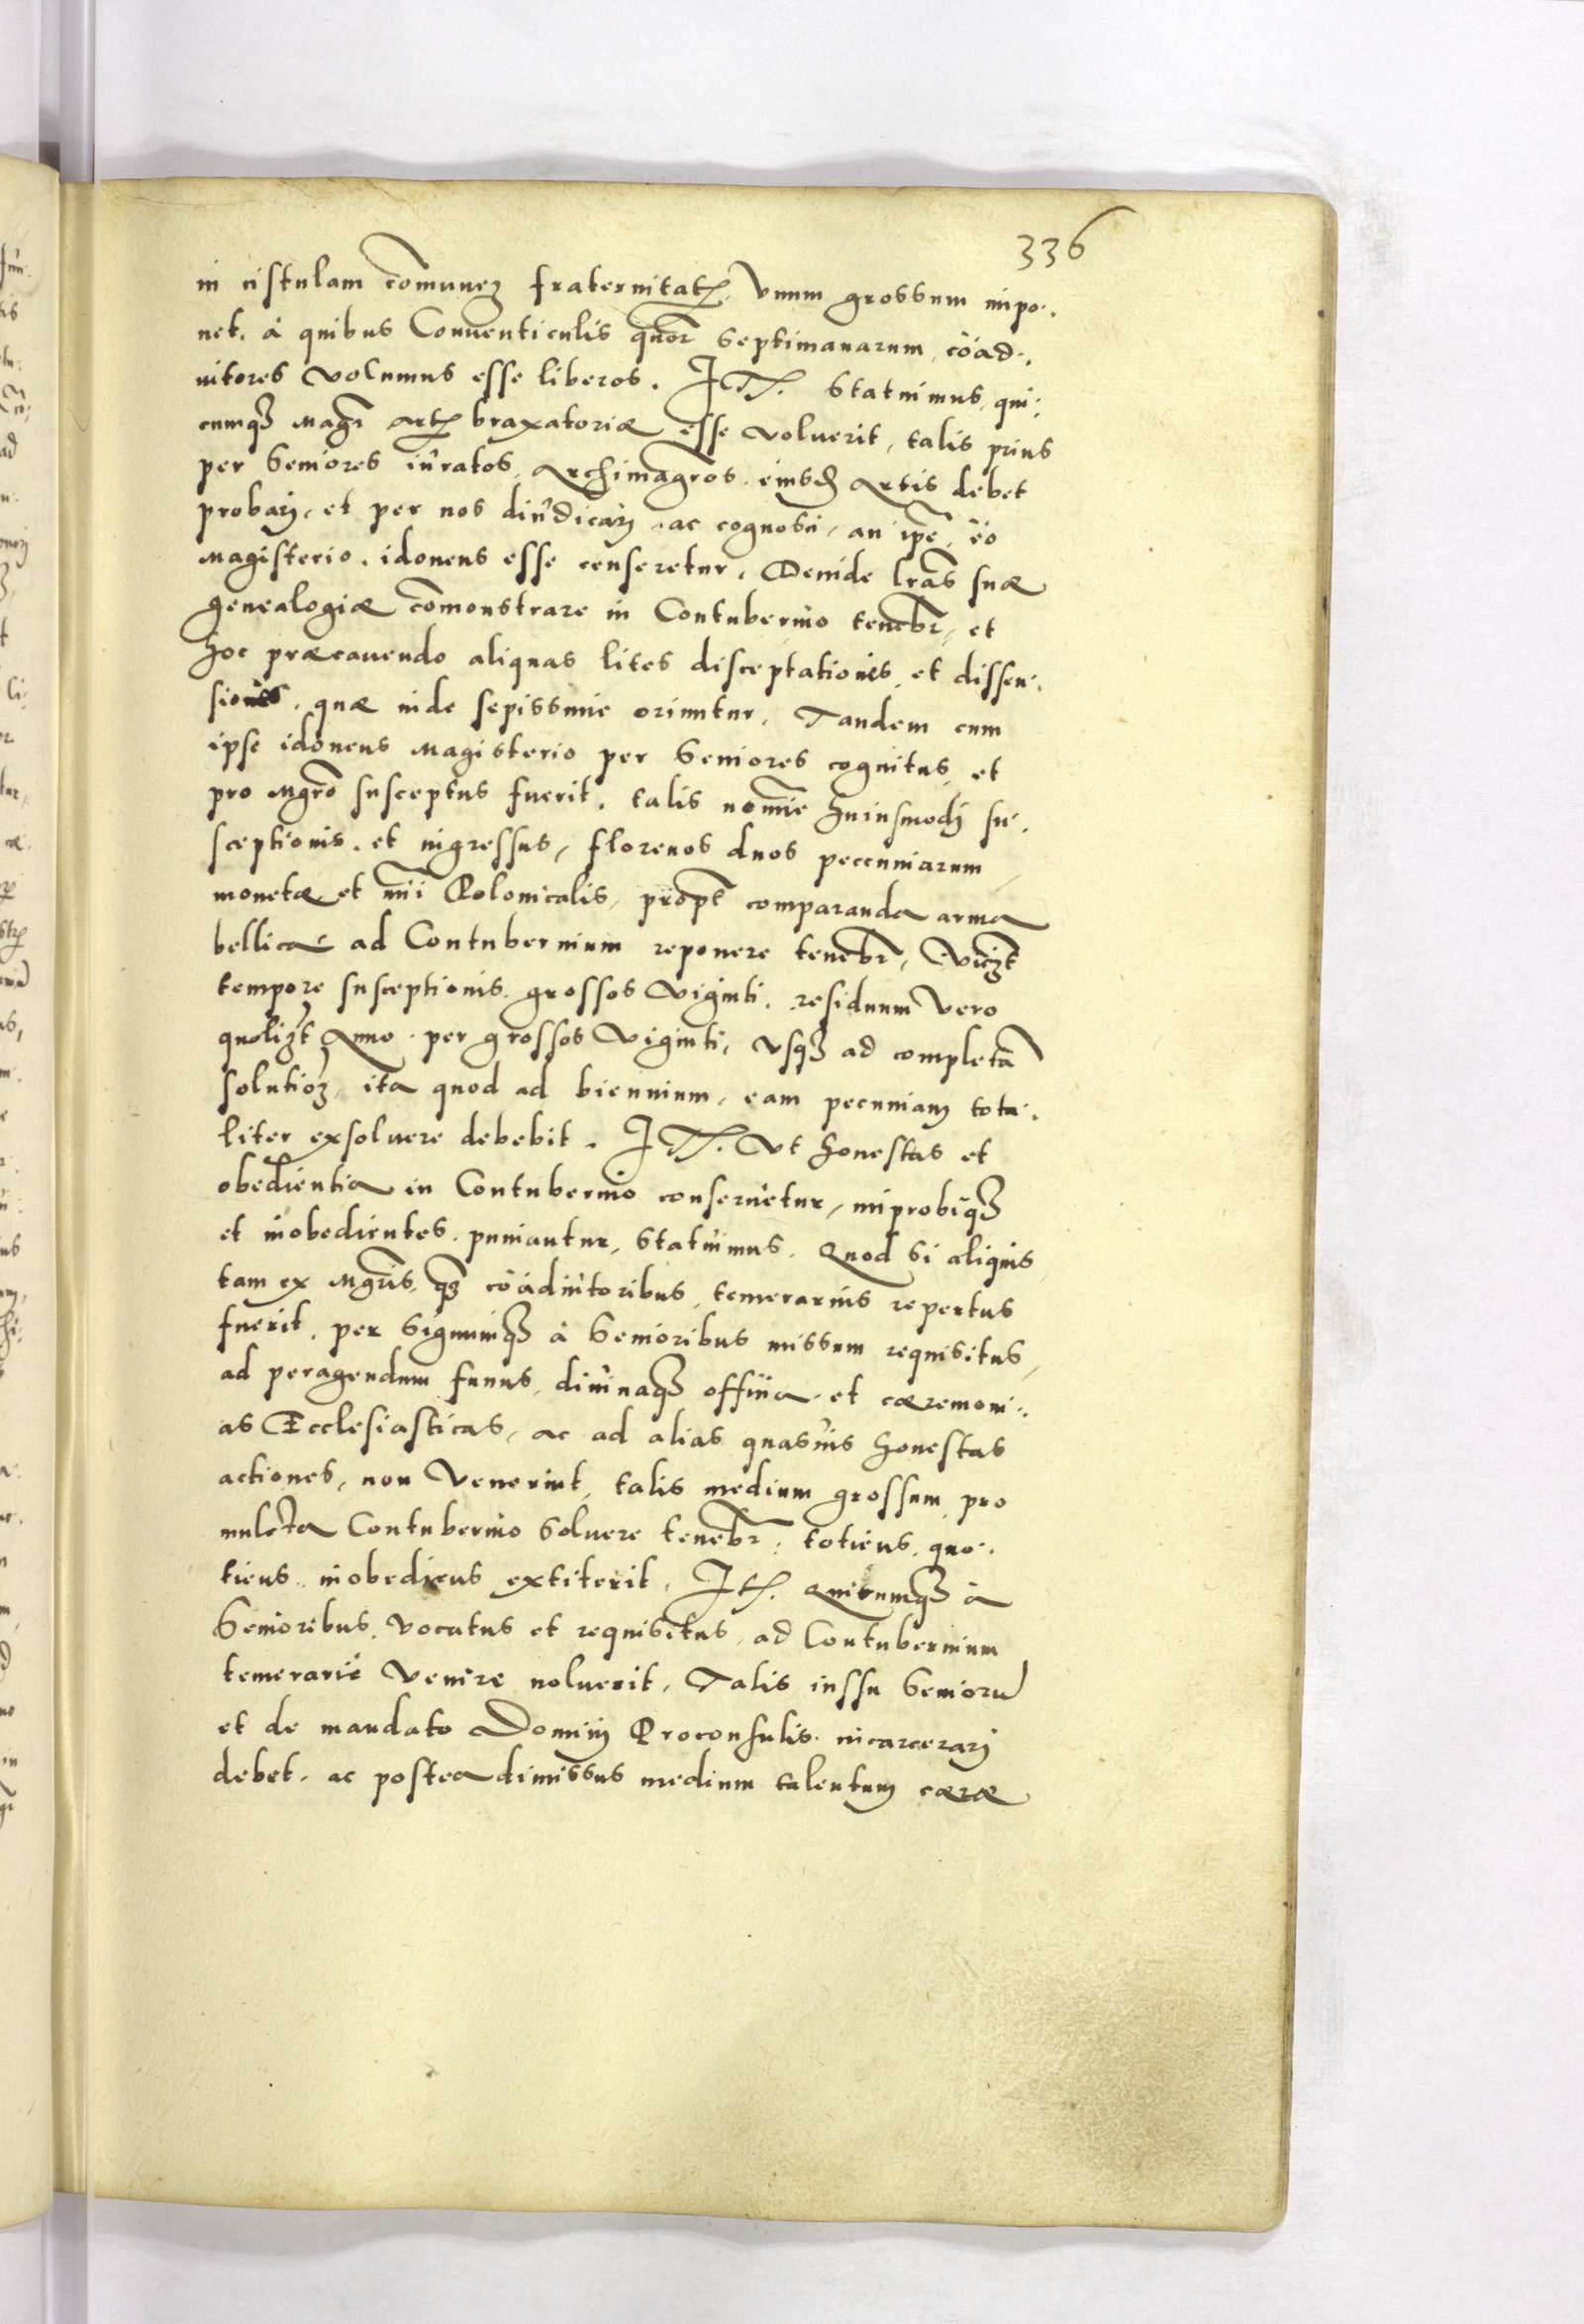 336
in cistulam com̄unez fraternitatꝭ, vnum grossum impo:
net. à quibus Conuenticulis quor̄ septimanarum, coad:
iutores volumus esse liberos. Itꝭ. Statuimus, qui:
cunqꝫ magr̄ artꝭ braxatoriæ esse voluerit, talis prius
per seniores iuratos, Archimagr̄os. eiusd̄ Artis debet
probarj, et per nos diiudicarj, ac cognosci, an ip̄e, eo
magisterio, idoneus esse censeretur. Deinde lr̄as suæ
genealogiæ com̄onstrare in Contubernio teneb̄r, et
hoc præcauendo aliquas lites disceptationes, et dissen:
siones, quæ inde sepissime oriuntur. Tandem cum
ipse idoneus magisterio per Seniores cognitus, et
pro Mgr̄o susceptus fuerit. talis nom̄ie huiusmodj su:
sceptionis. et ingressus, florenos duos peccuniarum
monetæ et nr̄i Polonicalis, propt̄ comparanda arma
bellica ad Contubernium reponere teneb̄r, viczt
tempore susceptionis. grossos viginti. residuum vero
quolizt Anno. per grossos viginti, vsqꝫ ad completā
solutioꝫ, ita quod ad biennium, eam pecuniam tota:
liter exsoluere debebit. Itꝭ. Vt honestas et
obedientia in Contubernio conseruetur, improbiqꝫ
et inobedientes, puniantur, Statuimus. Quod si aliquis
tam ex Mgr̄is, qꝫ coadiutoribus, temerarius repertus
fuerit, per signumqꝫ à Senioribus missum requisitus,
ad peragendum funus, diuinaqꝫ officia, et cæremoni:
as Ecclesiasticas, ac ad alias quasuis honestas
actiones, non venerint, talis medium grossum pro
mulcta Contubernio soluere teneb̄r: totiens, quo:
tiens inobediens extiterit. Itꝭ. Quicumqꝫ à
Senioribus, vocatus et requisitus, ad Contubernium
temerarie venire noluerit, Talis iussu Senioru
et de mandato Dominj Proconsulis. incarcerarj
debet. ac postea dimissus medium talentum cæræ